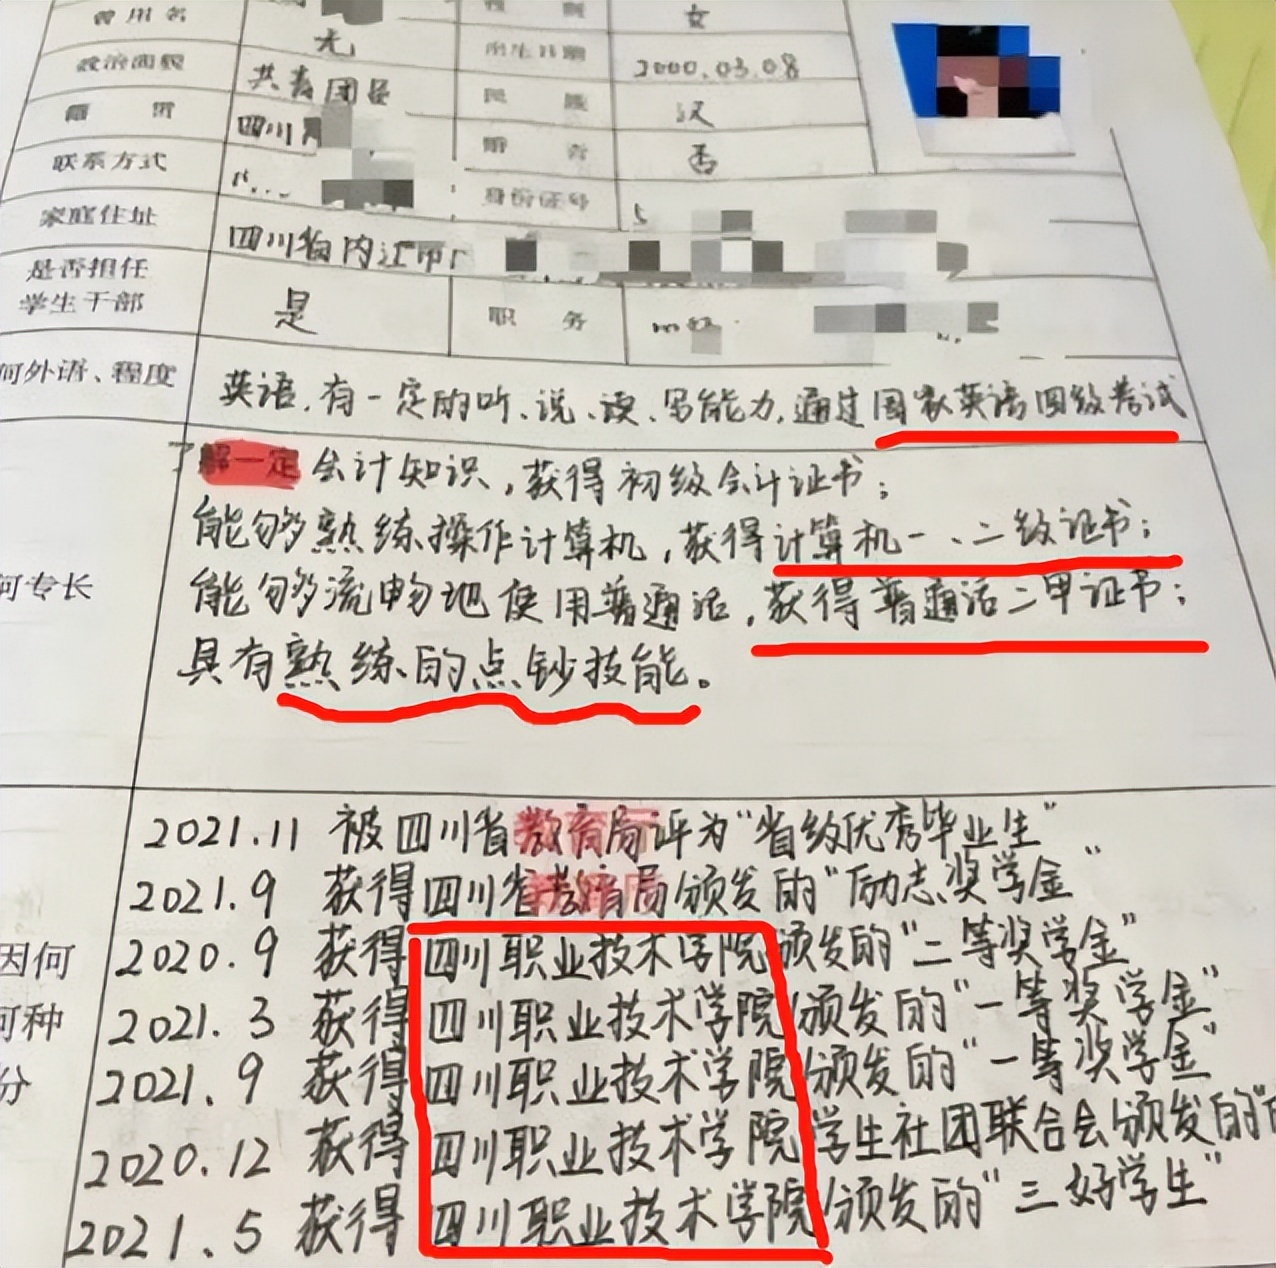 曾用名 无 性别 女
政治面貌 共青团员 出生日期 2000.03.08
籍贯 四川 民族 汉
联系方式 婚否 否
身份证号
家庭住址 四川省内江市
是否担任
学生干部 是 职务
何外语、程度 英语,有一定的听、说、读、写能力,通过国家英语四级考试
了解一定会计知识,获得初级会计证书;
能够熟练操作计算机,获得计算机一、二级证书;
何专长 能够流畅地使用普通话,获得普通话二甲证书;
具有熟练的点钞技能。
2021.11 被四川省教育局评为“省级优秀毕业生”
2021.9 获得四川省教育局颁发的“励志奖学金”
因何 2020.9 获得四川职业技术学院颁发的“二等奖学金”
何种 2021.3 获得四川职业技术学院颁发的“一等奖学金”
分 2021.9 获得四川职业技术学院颁发的“一等奖学金”
2020.12 获得四川职业技术学院学生社团联合会颁发的“
2021.5 获得四川职业技术学院颁发的“三好学生”